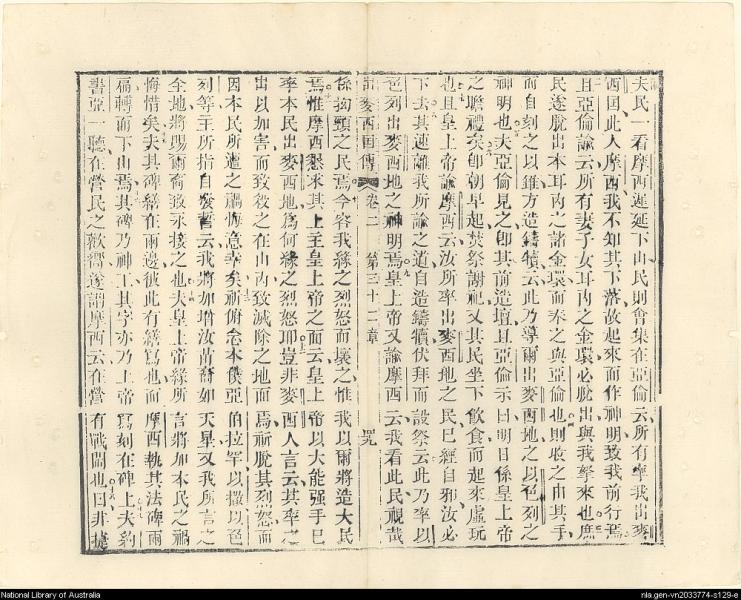 夫民一看摩西遲延下山民則會集在亞倫云所有率我出麥
西国此人摩西我不知其下落故起來而作神明致我前行焉
且亞倫諭云所有妻子女耳內之金環必脫出與我拏來也庶
民遂脫出本耳內之諸金環而奉之與亞倫也則收之由其手
而自刻之以錐方造鑄犢云此乃導爾出麥西地之以色列之
神明也夫亞倫見之即其前造壇且亞倫示曰明日係皇上帝
之瞻禮矣卽朝早起焚祭謝祀又其民坐下飲食而起來虛玩
也且皇上帝諭摩西云汝所率出麥西地之民已經自邪汝必
下去其速離我所諭之道自造鑄犢伏拜而設祭云此乃率以
色列出麥西地之神明焉皇上帝又諭摩西云我看此民視哉
出麥西国傳 卷二 第三十二章
係拗頸之民焉今容我發之烈怒而壞之惟我以爾將造大民
焉惟摩西懇求其上主皇上帝之面云皇上帝以大能强手已
率本民出麥西地爲何發之烈怒耶豈非麥西人言云其率之
出以加害而致殺之在山內致滅除之地面焉祈脫其烈怒而
因本民所遭之禍悔意幸矣祈俯念本僕亞伯拉罕以撒以色
列等主所指自發誓云我將加增汝苗裔如天星又我所言之
全地將賜爾裔致永接之也夫皇上帝緣所言將加本民之禍
悔惜矣夫其碑繕在兩邊彼此有繕寫也而摩西執其法碑兩
扁轉而下山焉其碑乃神工其字亦乃上帝寫刻在碑上夫豹
書亞一聽在營民之歡響遂謂摩西云在營有戰鬭也曰非捷
National Library of Australia
nla.gen-vn2033774-s129-e